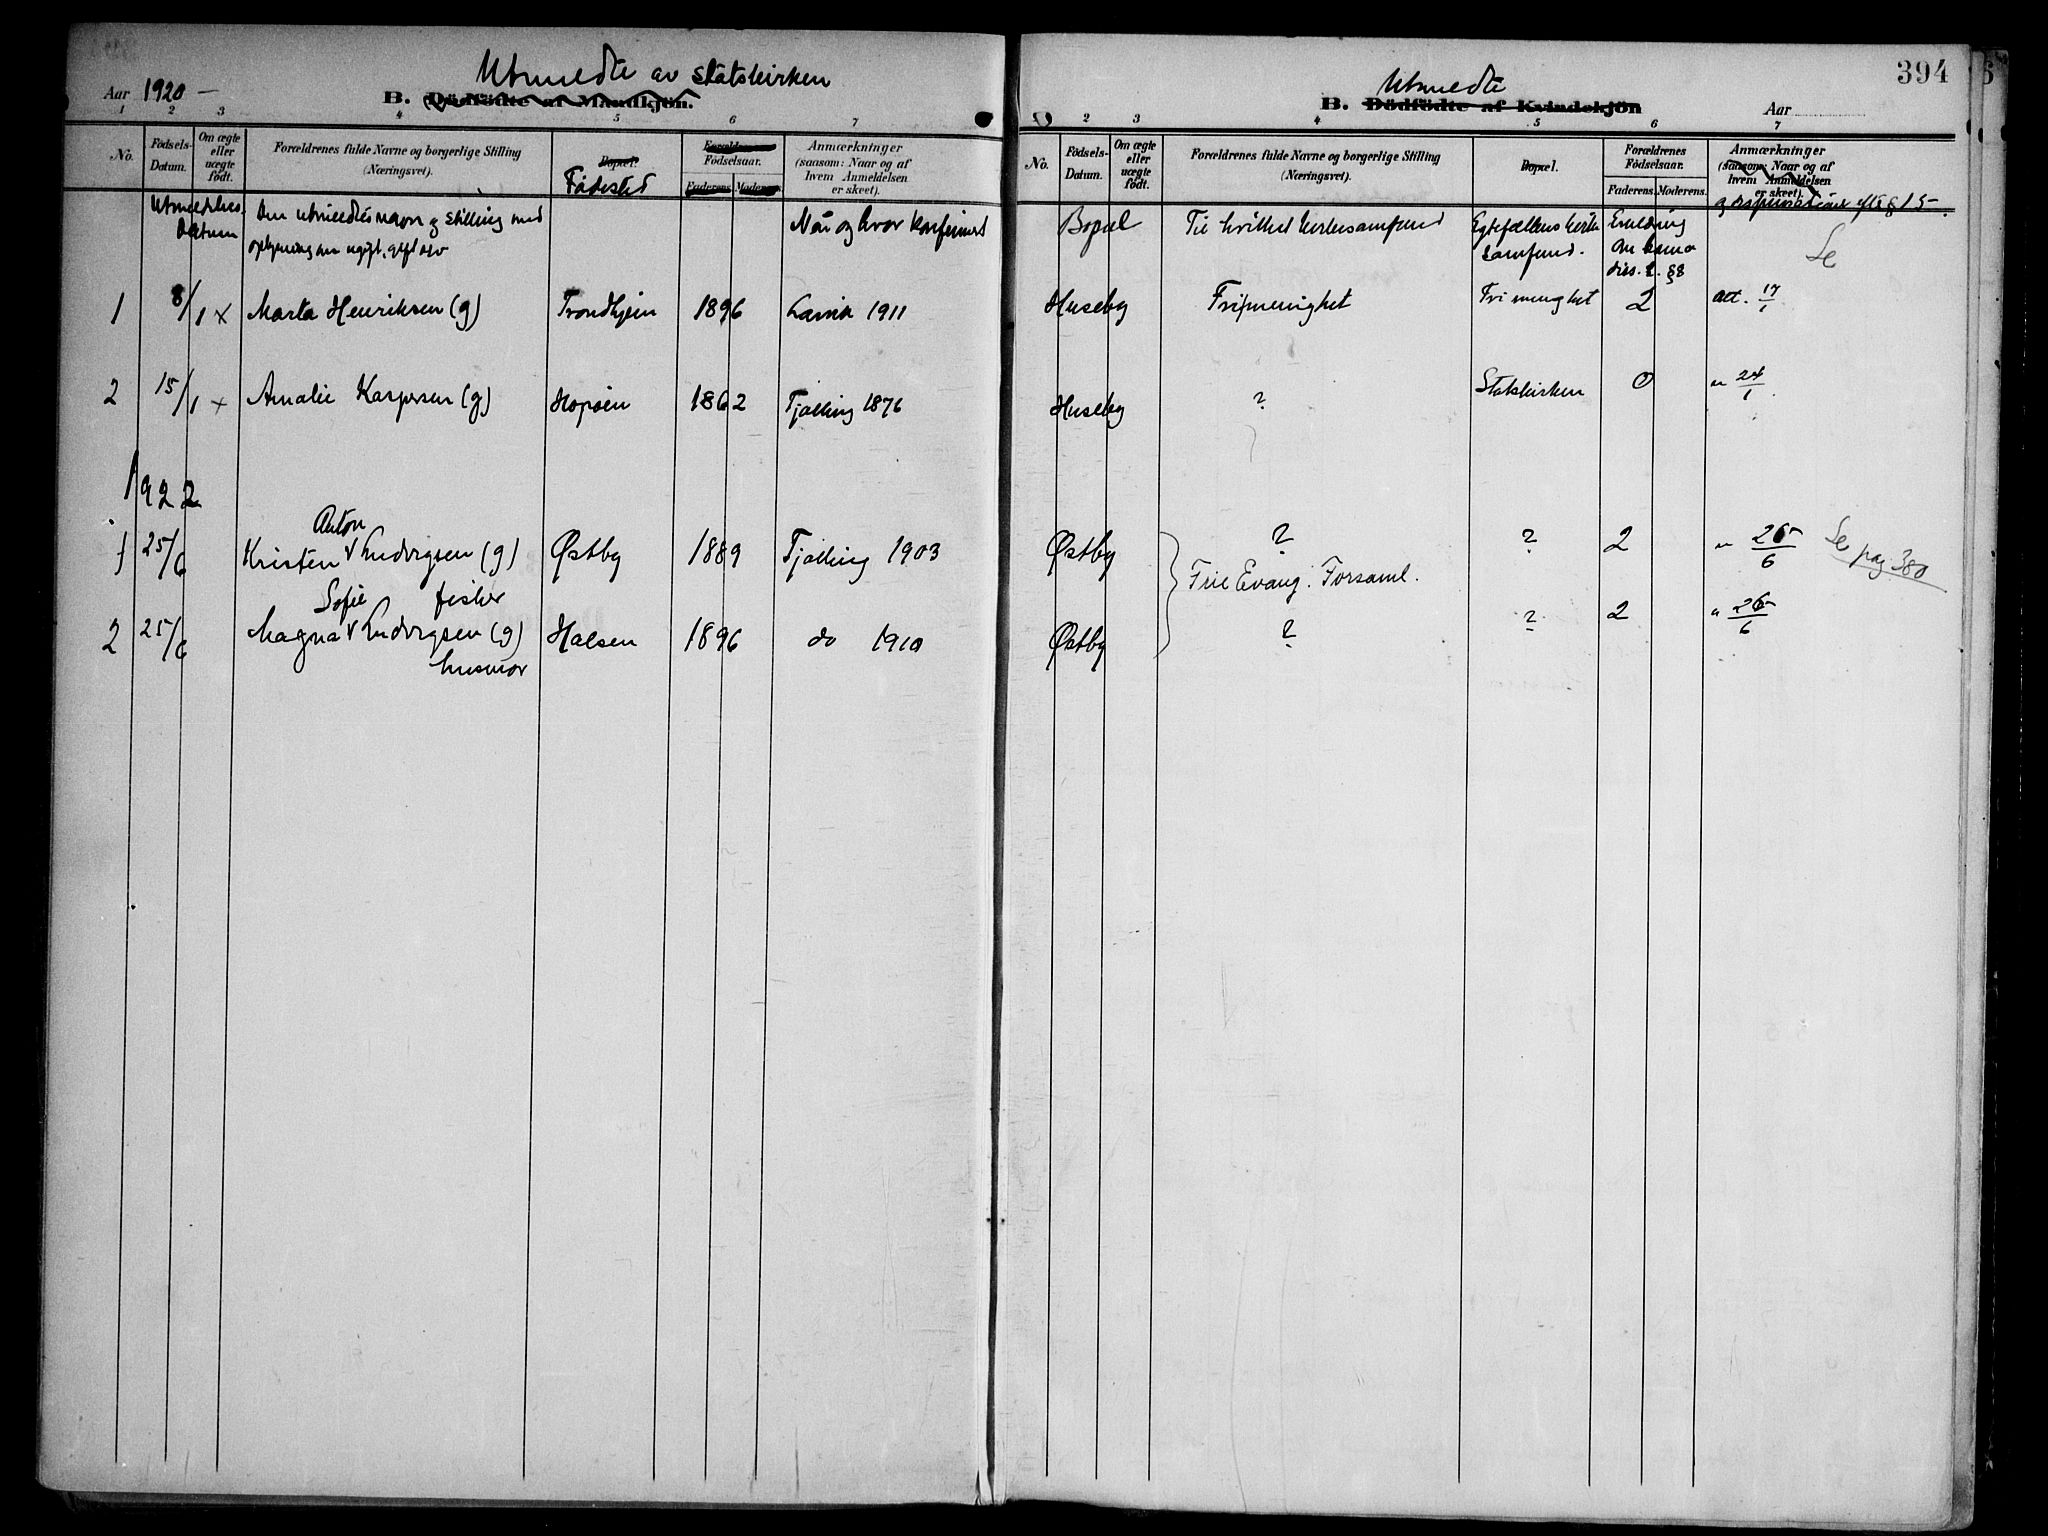 Utmeldte av statskirken
Aar 1920 —
B. Dödfödte af Mandkjön.
1 2 3 4 5 6 7
No.
Födsels-
Datum.
Om ægte
eller
uægte
födt.
Forældrenes fulde Navne og borgerlige Stilling
(Næringsvei).
Bopæl.
Fødested
Forældrenes
Födselsaar.
Faderens. Moderens.
Anmærkninger
(saasom: Naar og af
hvem Anmeldelsen
er skeet).
Utmeldelses-
Datum
Den utmeldtes navn og stilling med
oplysning om ugift, gift osv
Når og hvor konfirmert
1 8/1 x Marta Henriksen (g) Trondhjem 1896 Larvik 1911
2 15/1 x Amalie Kaspersen (g) Hopsen 1862 Tjølling 1876
1922
Anton
1 25/6 Kristen v Ludvigsen (g) Østby 1889 Tjølling 1903
Sofie fisker
2 25/6 Magna v Ludvigsen (g) Halsen 1896 do 1910
husmor
394
Utmeldte
B. Dödfödte af Kvindekjön
Aar
2 3 4 5 6 7
No.
Födsels-
Datum.
Om ægte
eller
uægte
födt.
Forældrenes fulde Navne og borgerlige Stilling
(Næringsvei).
Bopæl.
Forældrenes
Födselsaar.
Faderens. Moderens.
Anmærkninger
(saasom: Naar og af
hvem Anmeldelsen
er skeet).
§ 15.
Bopæl
Til hvilket kirkesamfund
Egtefællens kirke
samfund.
Erklæring
om barna
diss. l. §8
Se
Huseby Frimenighet Frimenighet 2 Att. 17/1
Huseby ? Statskirken 0 " 24/1
Østby ? ? 2 " 26/6 Se pag 380
Frie Evang. Forsaml.
Østby ? ? 2 " 26/6